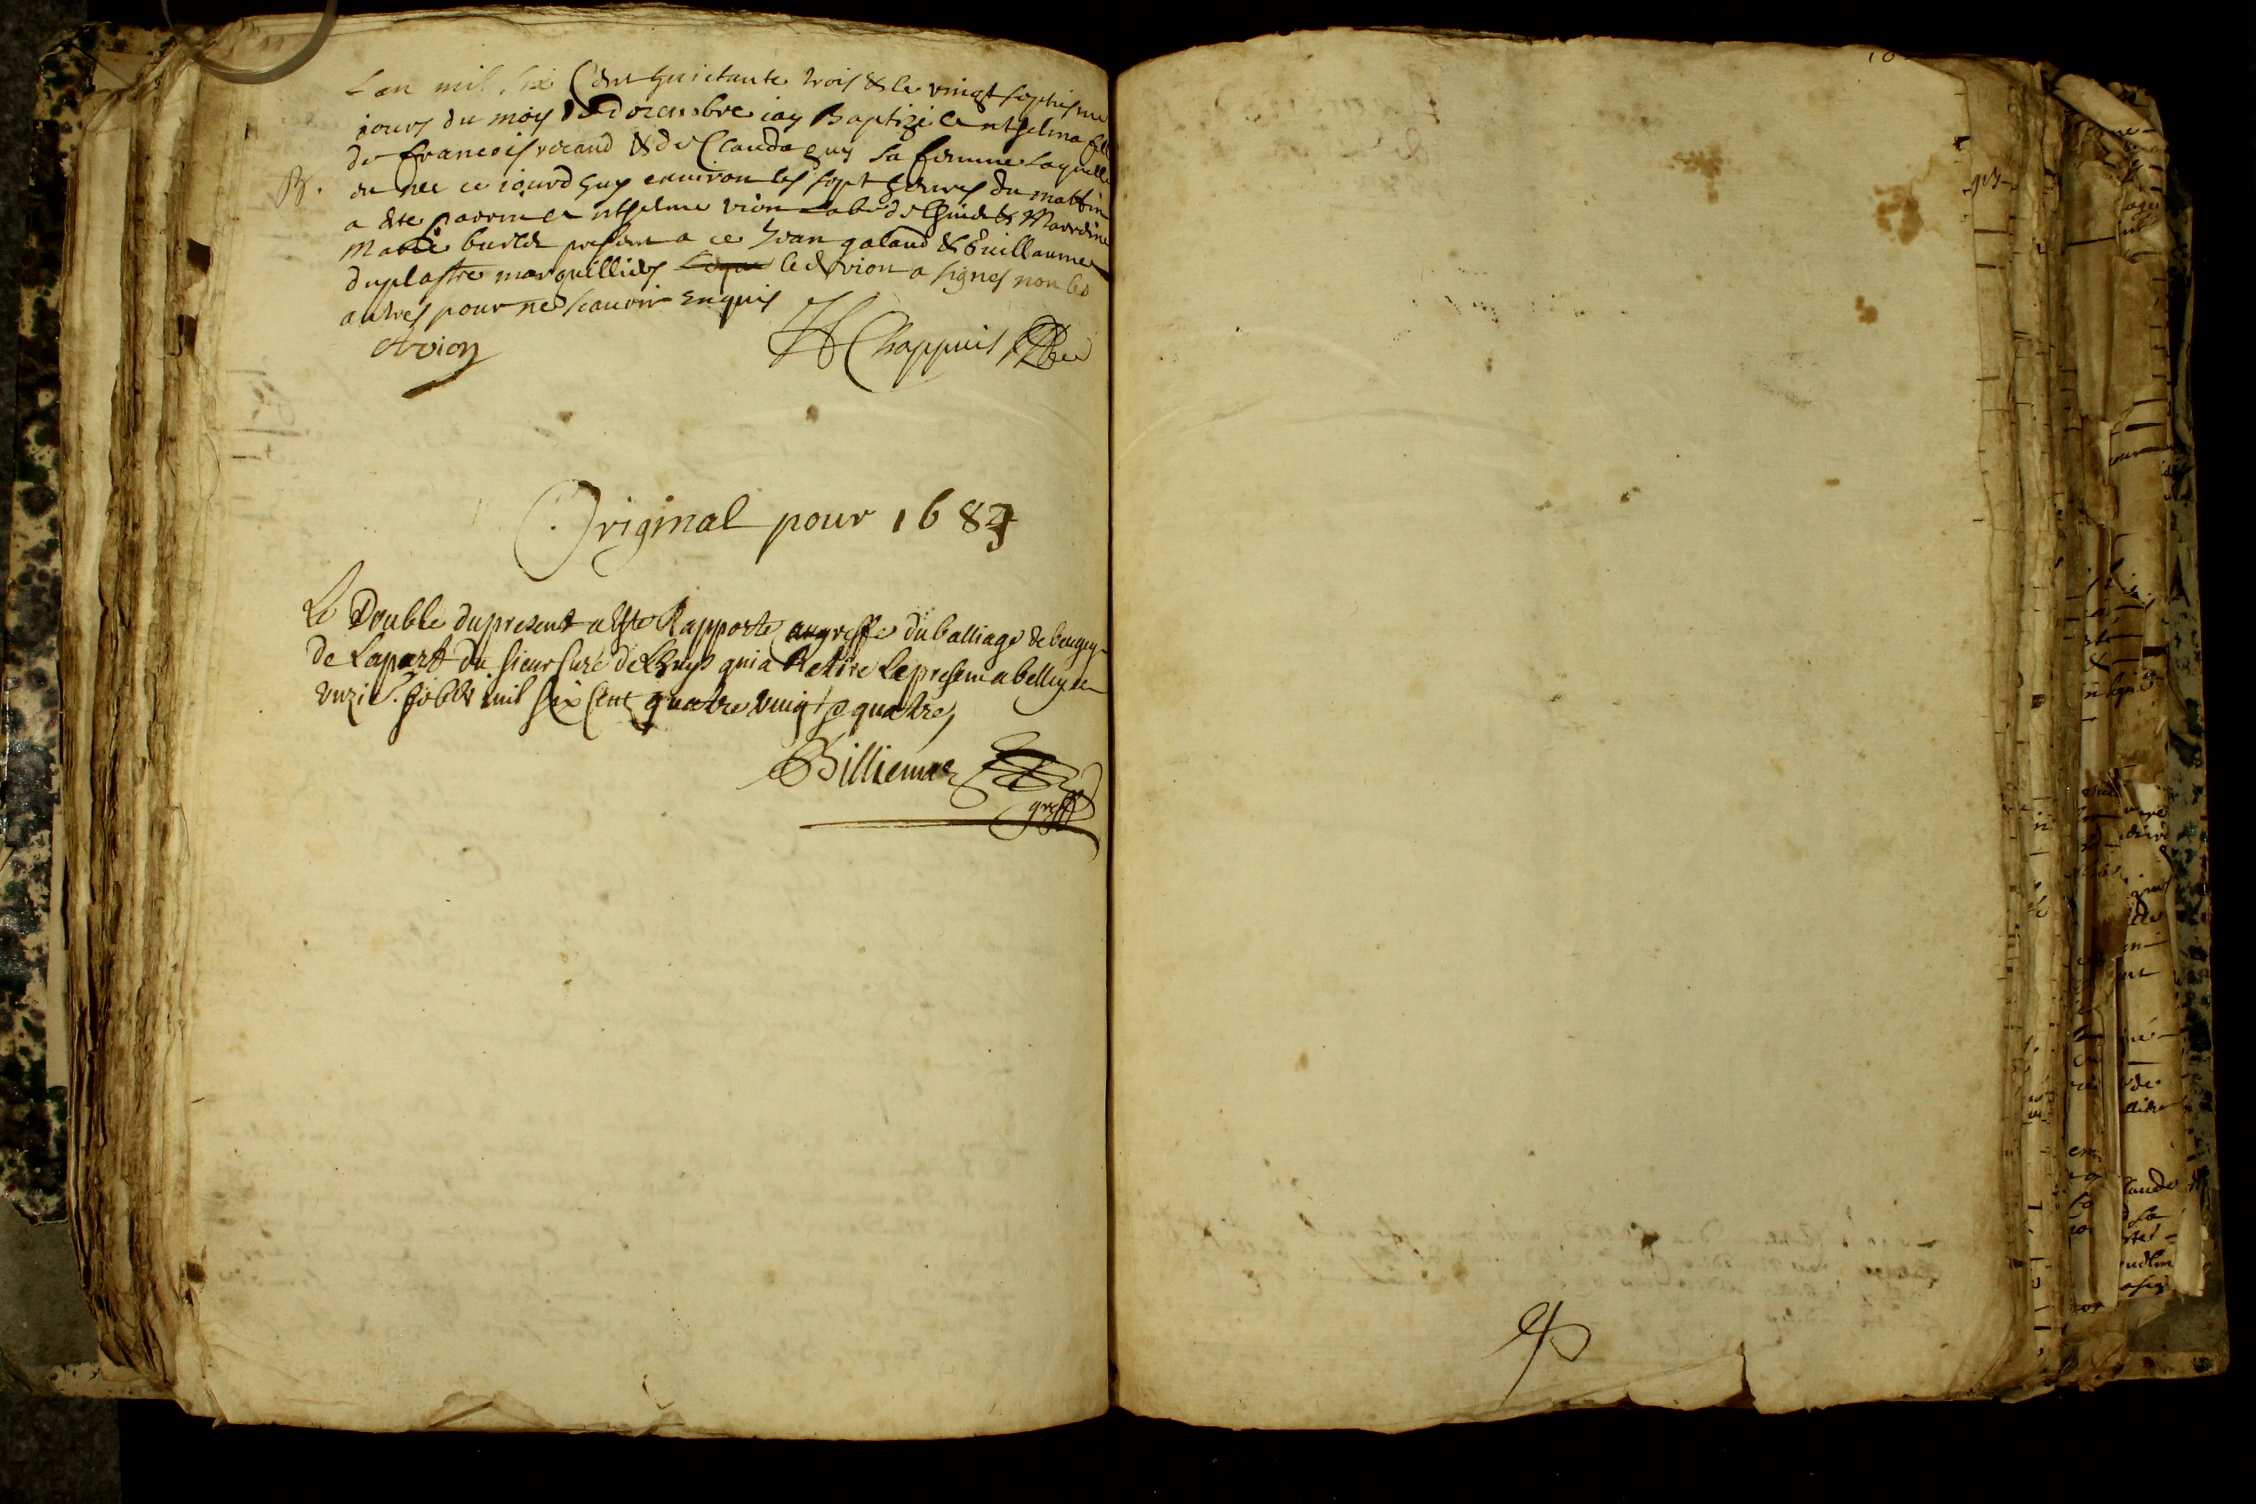 L'an mil six Cent huictante trois & le vingt septiesme
jours du moys de decembre iay Baptizé Anthelma fille
de francois & de Clauda guy sa femme laquelle
B. en nee ce iourdhuy environ les sept heures du mattin
a este parrin Anthelme vion & Marrdine
present a ce Jean galand & Guillaume
duplastre marguilliers led vion a signes non les
autres pour ne scauoir enquis
A vion Chappuis
Original pour 1683
Le Double du present a este Rapporte au greffe du balliage de beugey
de la part du sieur Curé de qui a Retire le present a belley le
mil six Cent quatre vingt quatre
Billiemaz
greff